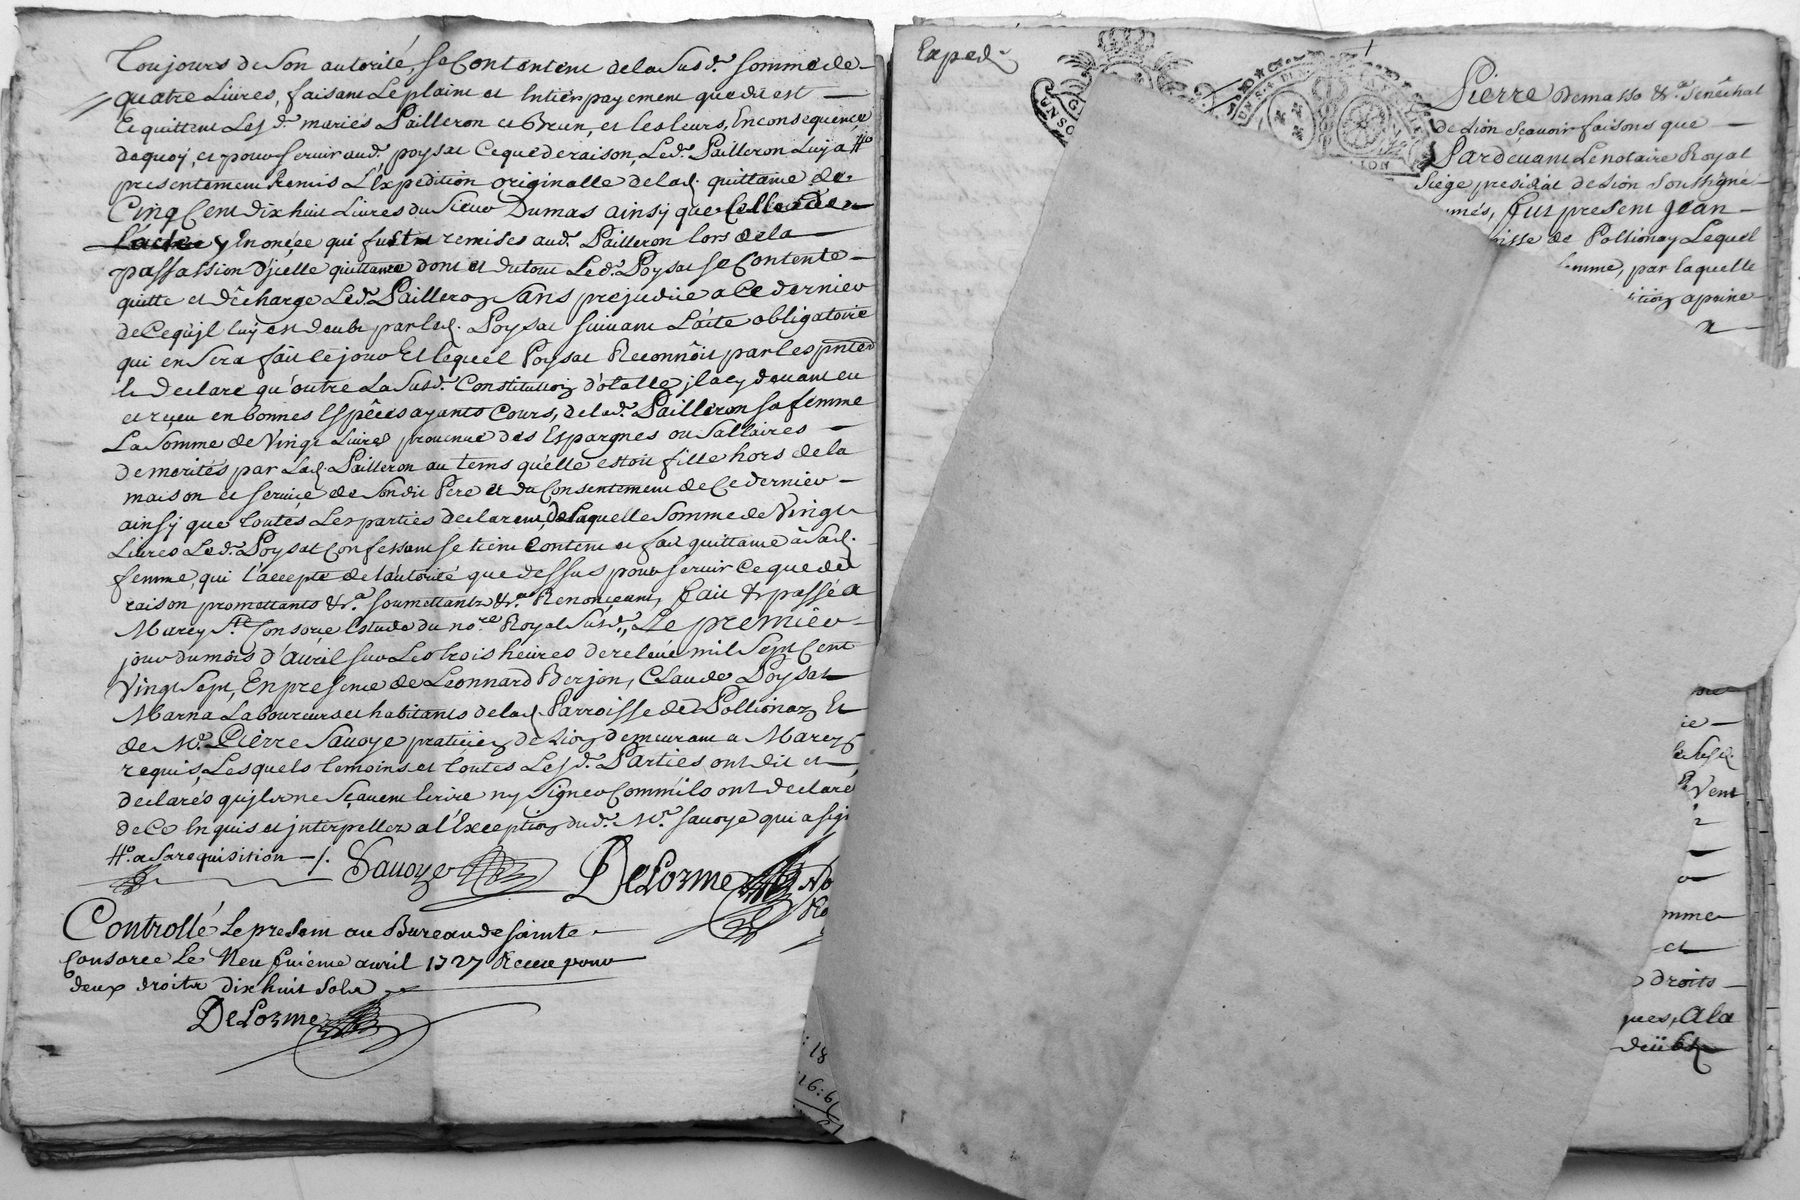 Toujours de Son autorité, se Contentent de la Susd.e somme de
quatre Liures, faisant Le plaint et Entier payement que dit est
Et quittent Les d. mariés Pailleron et Brun, et les leurs, En consequence
de quoy, et pour seruir aud. poysat ce que de raison, Led. Pailleron Luy a
presentement Remis L'Expedition originalle de lad. quittance de
Cinq Cent dix huit Liures du Sieur Dumas ainsy que
y Enoncée qui furent remises aud. Pailleron lors de la
passassion d'jcelle quittance dont et du tout Led. Poysat se Contente
quitte et décharge Led. Pailleron Sans prejudice a Ce dernier
de Ce qu'jl luy est deubt par led. Poysat suiuant L'acte obligatoire
qui en Sera fait ce jour Et lequel Poysat Reconnôit par les pntes
et declare qu'outre La Susd. Constitution d'otalle jl a cy deuant eu
et reçeu en bonnes Espêces ayants Cours, de lad. Pailleron sa femme
La Somme de Vingt Liures prouenue des Espargnes ou Sallaires
demerités par Lad. Pailleron au tems qu'elle estoit fille hors de la
maison et seruice de Sondit Pere et du Consentement de Ce dernier
ainsy que toutes Les parties declarent, de Laquelle Somme de Vingt
Liures Led. Poysat Confessant se tient Content et fait quittance à Sad.
femme, qui l'accepte de l'autorité que dessus pour seruir Ce que de
raison promettants &.a soumettants &.a Renonçeant, fait & passé a
Marcy S.te Consorce Estude du no.re Royal Susd., Le premiêr
jour du môis d'Auril sur Les trois heures de releué mil Sept Cent
Vingt Sept, En presence de Leonnard Berjon, Claude Poysat
Marna Laboureurs et habitants de lad. Parroisse de Pollionaz Et
de M.e Pierre Sauoye praticien de Lion demeurant a Marcy
requis, Lesquels temoins et toutes Les d. Parties ont dit et
declarés qu'jls ne Sçauent Ecrire ny Signer Comm'ils ont declaré
de Ce Enquis et jnterpellez a l'Exception dud. M.e Sauoye qui a sig
a Sa requisition
Sauoye DeLorme No
Ro
Controllé Le present au Bureau de Sainte
Consorce Le Neufuieme auril 1727 Receu pour
deux droits dix huit Sols
DeLorme
: 18
16 : 6
Exped.
LION
Pierre Demasso &.a Senêchal
de Lion Sçauoir faisons que
Pardeuant Le notaire Royal
Siége presidial de Lion Soussigné
més, fut present Jean
oisse de Pollionay Lequel
emme, par laquelle
ition a peine
a
ie
Vent
2
mme
et
droits
ques, A la